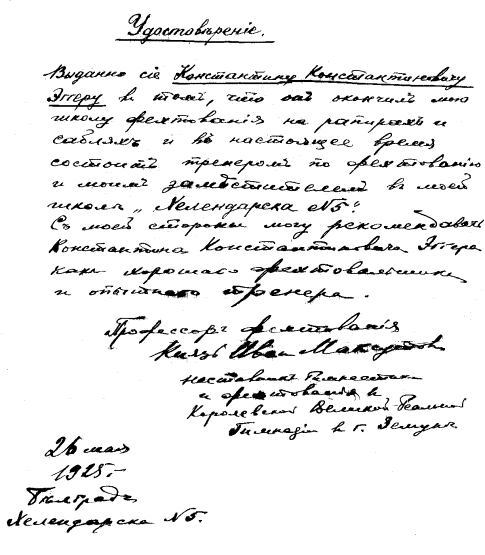 Удостовѣреніе.
Выданно сіе Константину Константиновичу
Эггеру в томъ, что онъ окончилъ мою
школу фехтованія на рапирахъ и
сабляхъ и въ настоящее время
состоитъ тренеромъ по фехтованію
и моимъ замѣстителемъ в моей
школѣ „Хелендарска №5".
Съ моей стороны могу рекомендавать
Константина Константиновича Эггера
какъ хорошаго фехтовальщика
и опытнаго тренера.
Профессоръ фехтованія
Князь Иван Максутов
наставникъ Гимнастики
и фехтованія в
Королевской Великой Реальной
Гимназіи в г. Земунѣ
26 мая
1925.-
Бѣлградъ
Хелендарска №5.